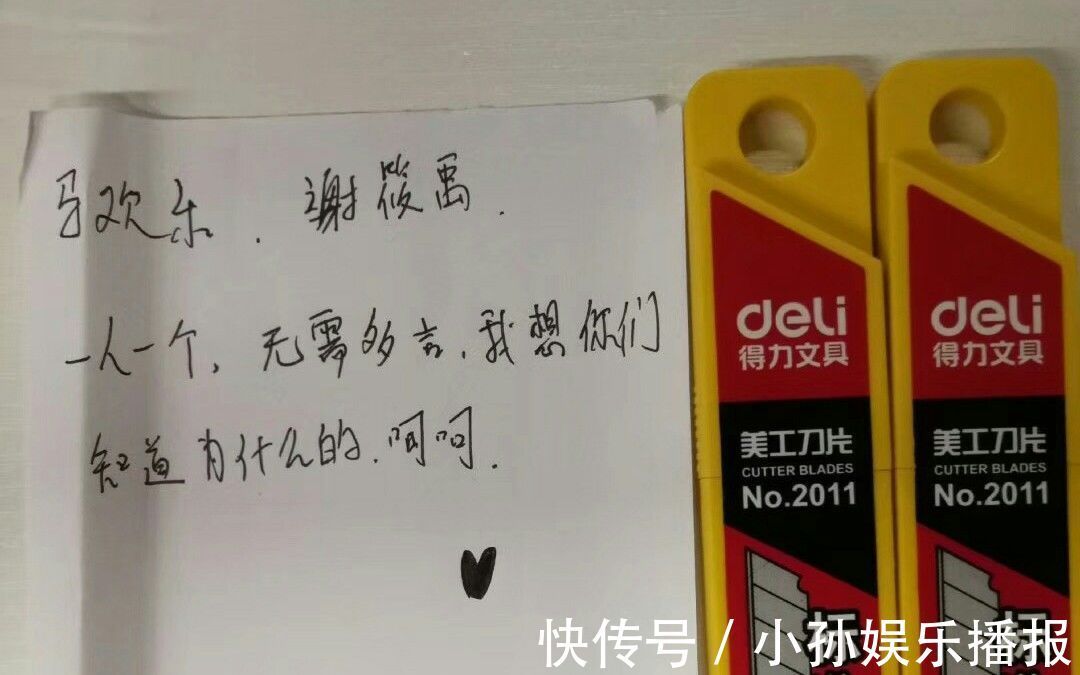 马欢乐.谢筱禹.
一人一个,无需多言,我想你们
知道为什么的.呵呵.
deli
得力文具
美工刀片
CUTTER BLADES
No.2011
标
deli
得力文具
美工刀片
CUTTER BLADES
No.2011
标
快传号/小孙娱乐播报